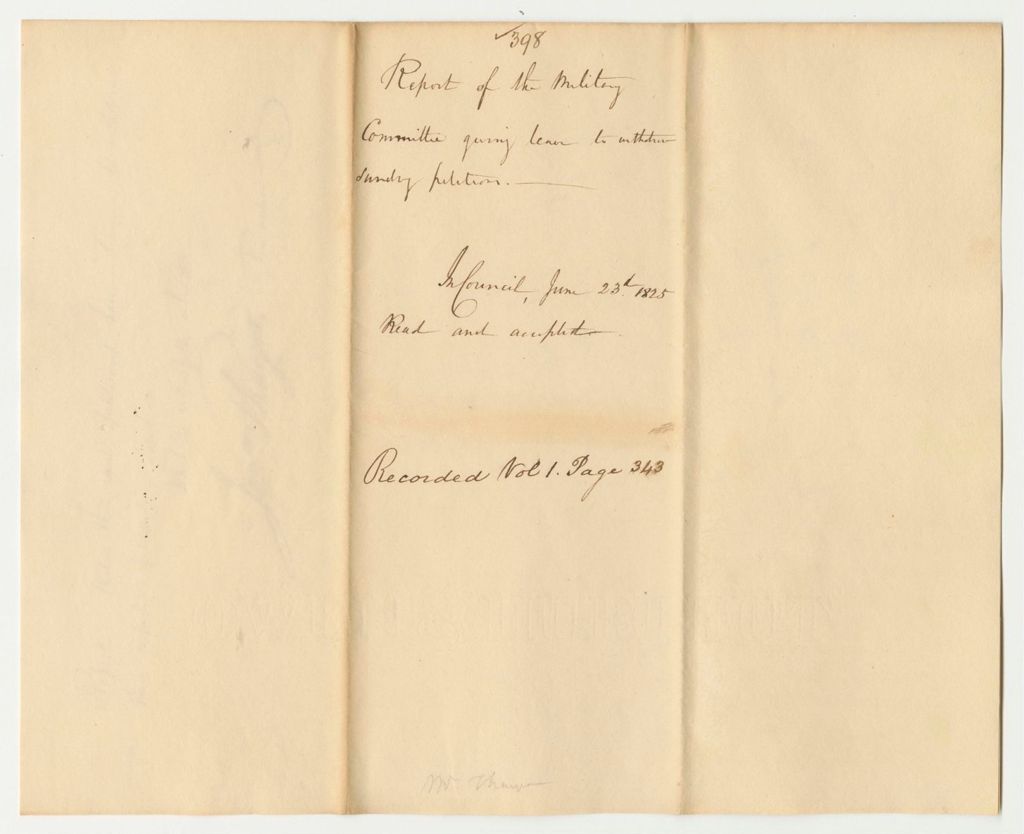 398
Report of the Military
Committee giving leave to withdraw
sundry petitions.
In Council, June 23d. 1825
Read and accepted
Recorded Vol 1. Page 343
Mr.